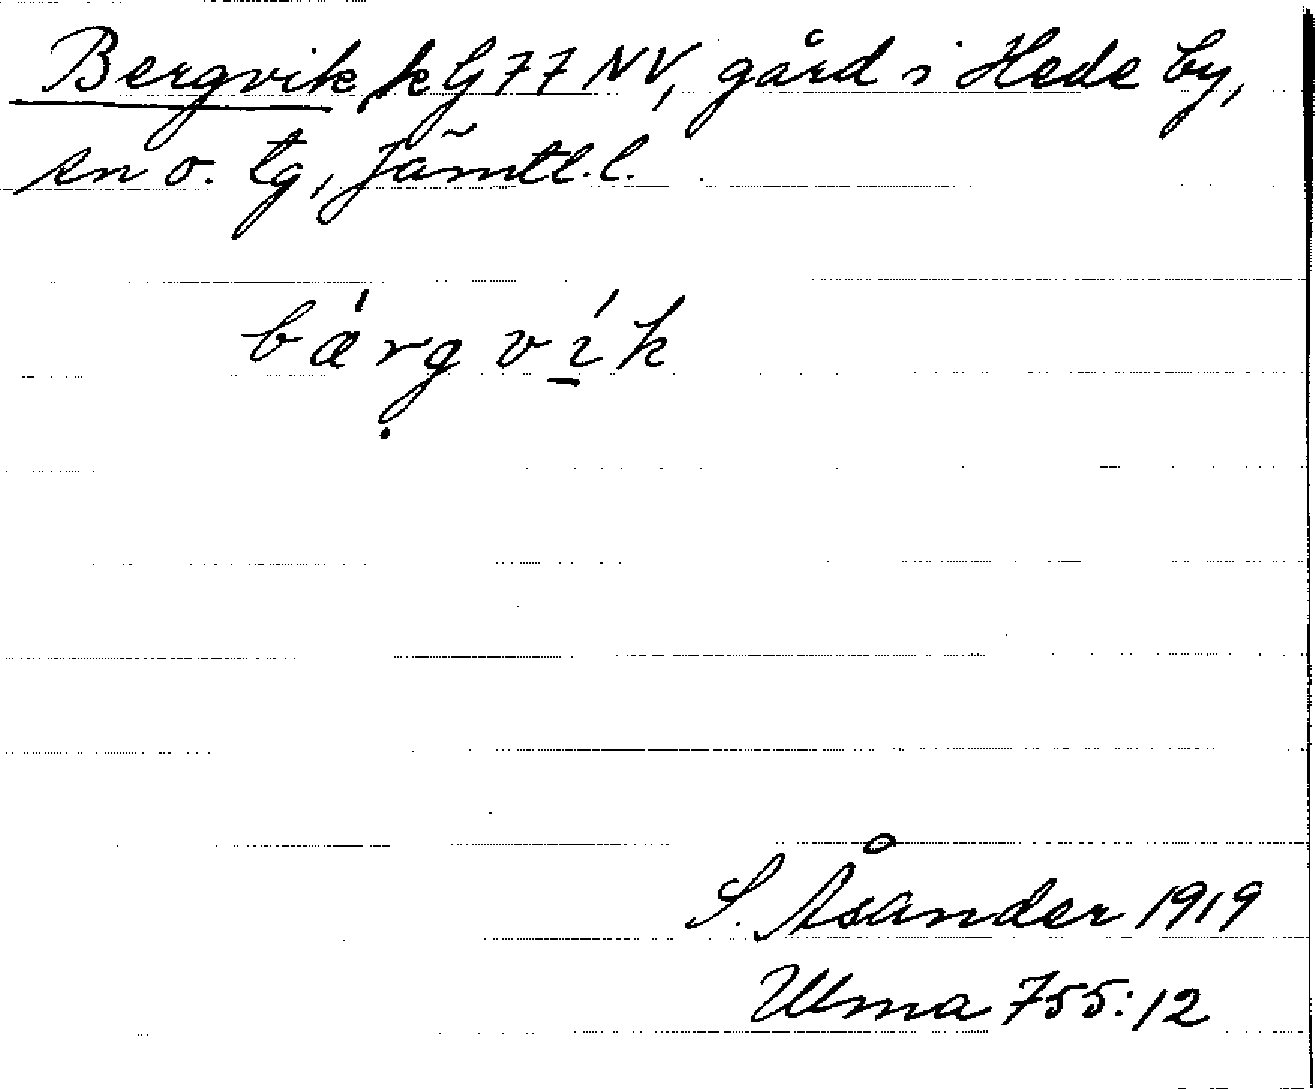 Bergvik, k G 77 NV, gård i Hede by,
sn o. tg, Jämtl. l.
bárg vík
S. Åsander 1919
Ulma 755:12